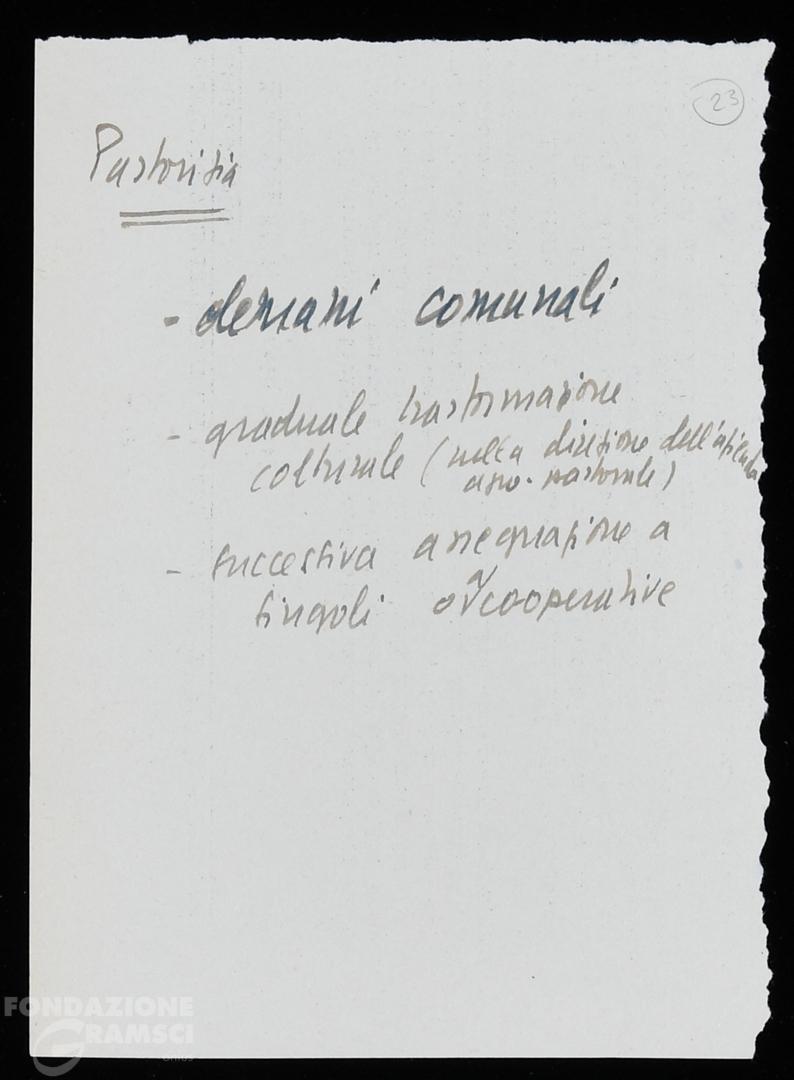 23
Pastorizia
- demani comunali
- graduale trasformazione
colturale (nella direzione dell'azienda
agro-pastorale)
- successiva assegnazione a
singoli o a cooperative
FONDAZIONE
GRAMSCI
onlus